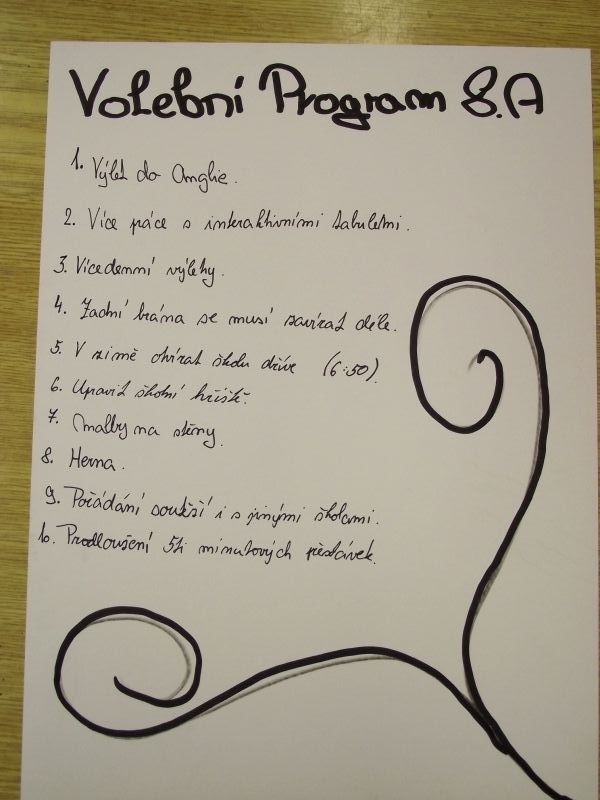 Volební Program 8.A
1. Výlet do Anglie.
2. Více práce s interaktivními tabulemi.
3. Vícedenní výlety.
4. Zadní brána se musí zavírat déle.
5. V zimě otvírat školu dříve (6:50).
6. Upravit školní hřiště.
7. Malby na stěny.
8. Herna.
9. Pořádání soutěží i s jinými školami.
10. Prodloušení 5ti minutových přestávek.